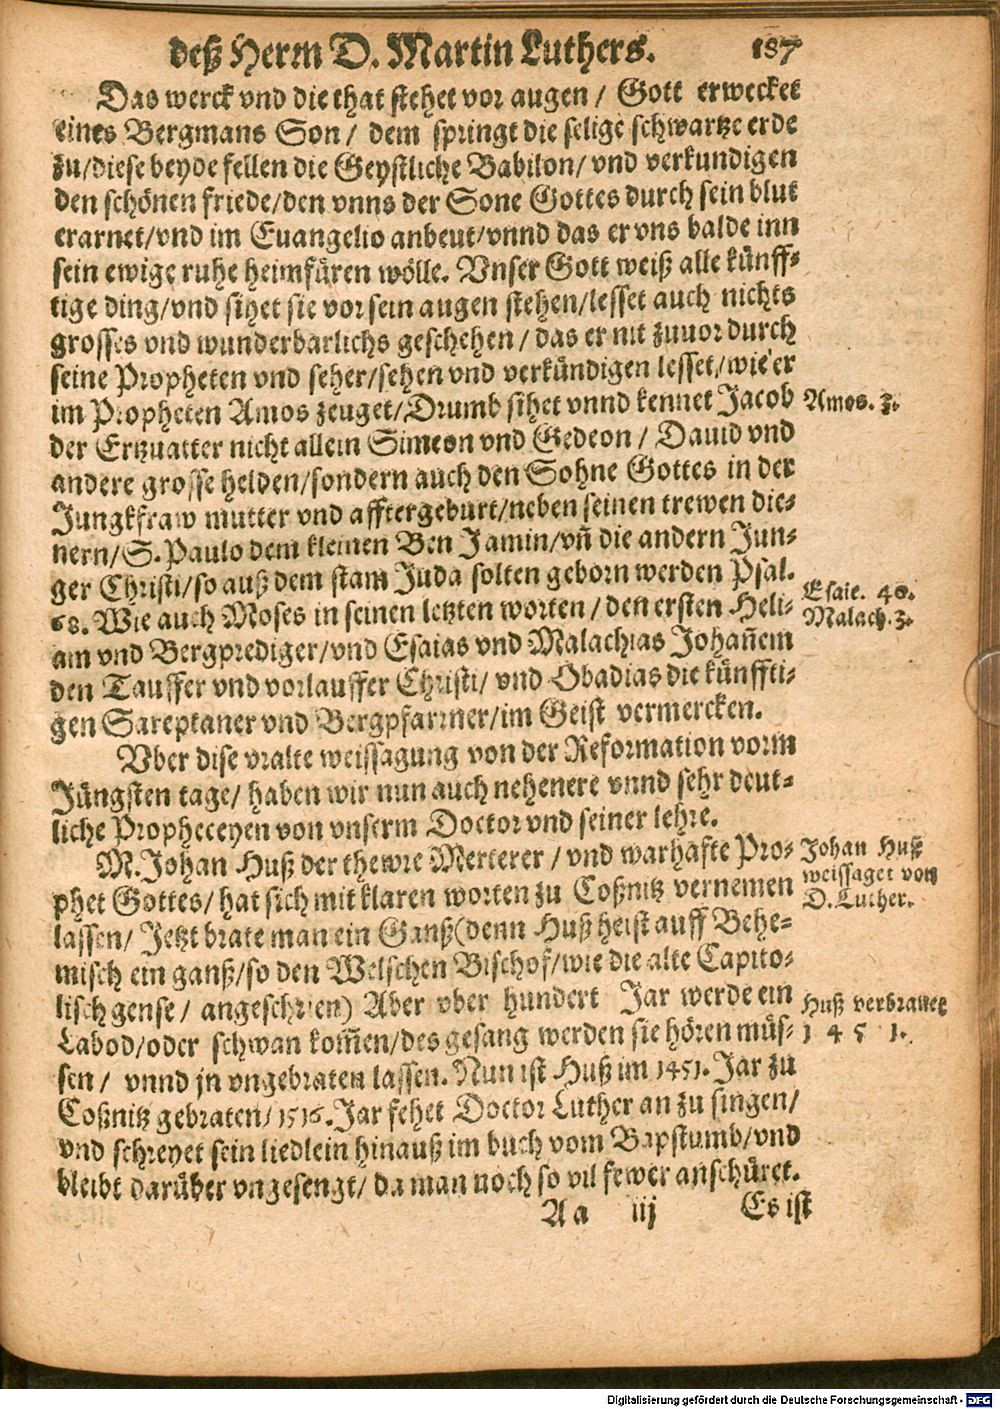 deß Herrn D. Martin Luthers. 187
Das werck vnd die that stehet vor augen / Gott erwecket
eines Bergmans Son / dem springt die selige schwartze erde
zu/diese beyde fellen die Geystliche Babilon/ vnd verkundigen
den schönen friede/den vnns der Sone Gottes durch sein blut
erarnet/vnd im Euangelio anbeut/vnnd das er vns balde inn
sein ewige ruhe heimfüren wölle. Vnser Gott weiß alle künff-
tige ding/vnd sihet sie vor sein augen stehen/lesset auch nichts
grosses vnd wunderbarlichs geschehen / das er nit zuuor durch
seine Propheten vnd seher/sehen vnd verkündigen lesset/wie er
im Propheten Amos zeuget/Drumb sihet vnnd kennet Jacob
Amos. 3.
der Ertzuatter nicht allein Simeon vnd Gedeon / Dauid vnd
andere grosse helden/sondern auch den Sohne Gottes in der
Jungkfraw mutter vnd afftergeburt/neben seinen trewen die-
nern/S. Paulo dem kleinen Ben Jamin/vñ die andern Jun-
ger Christi/so auß dem stam Juda solten geborn werden Psal.
68. Wie auch Moses in seinen letzten worten / den ersten Heli-
Esaie. 40.
Malach. 3.
am vnd Bergprediger/vnd Esaias vnd Malachias Johañem
den Tauffer vnd vorlauffer Christi/ vnd Obadias die künffti-
gen Sareptaner vnd Bergpfarrner/im Geist vermercken.
Vber dise vralte weissagung von der Reformation vorm
Jüngsten tage/ haben wir nun auch nehenere vnnd sehr deut-
liche Propheceyen von vnserm Doctor vnd seiner lehre.
M. Johan Huß der thewre Merterer / vnd warhafte Pro-
Johan Huß
weissaget von
D. Luther.
phet Gottes/ hat sich mit klaren worten zu Coßnitz vernemen
lassen/ Jetzt brate man ein Ganß(denn Huß heist auff Behe-
misch ein ganß/so den Welschen Bischof/wie die alte Capito-
lisch gense / angeschrien) Aber vber hundert Jar werde ein
Huß verbrattet
1 4 5 1.
Labod/oder schwan kom̃en/des gesang werden sie hören müs-
sen / vnnd jn vngebraten lassen. Nun ist Huß im 1451. Jar zu
Coßnitz gebraten/ 1516. Jar fehet Doctor Luther an zu singen/
vnd schreyet sein liedlein hinauß im buch vom Bapstumb/vnd
bleibt darüber vngesengt/ da man noch so vil fewer anschüret.
Aa iij Es ist
Digitalisierung gefördert durch die Deutsche Forschungsgemeinschaft - DFG